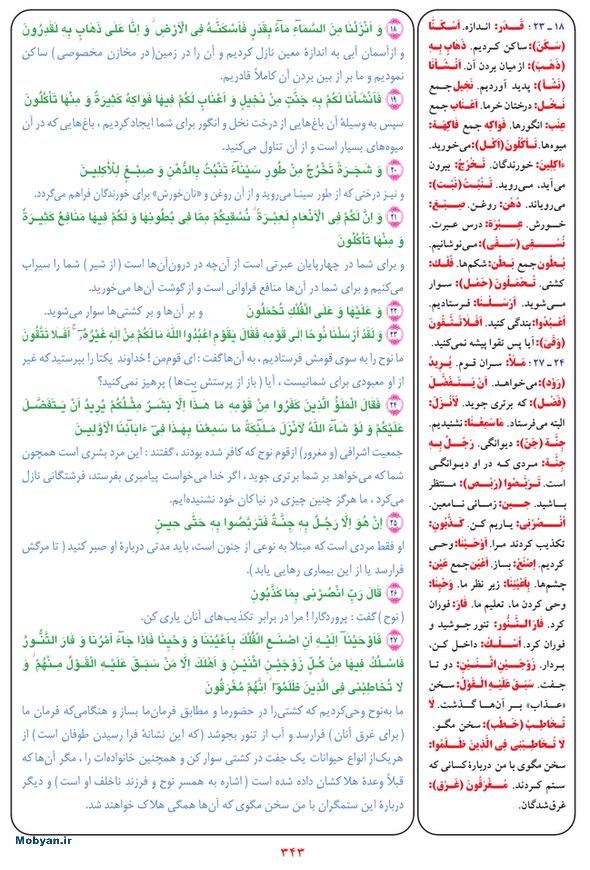 ۱۸ـ۲۳: قَـدَر: اندازه. اَسْکَـنّا
(سَکَنَ): ساکن کردیم. ذَهابٍ بِه
(ذَهَبَ): ازمیان بردن آن. اَنْـشَـأْنـا
(نَشَأَ): پدید آوردیم. نَخیل جمع
نَخْل: درختان خرما. اَعْناب جمع
عِنَب: انگورها. فَواکِه جمع فاکِهَة:
میوه‌ها. تَـأْکُلُونَ (اَکَلَ): می‌خورید.
ءاکِلین: خورندگان. تَـخْرُجُ: بیرون
می‌آید، می‌روید. تَـنْبُتُ (نَبَتَ):
می‌رویاند. دُهْن: روغن. صِبْـغ:
خورش. عِبْـرَة: درس عبرت.
نُسْـقـی (سَقی): می‌نوشانیم.
بُطُون جمع بَطْن: شکم‌ها. فُلْك:
کشتی. تُـحْمَلُونَ (حَمَل): سوار
می‌شوید. اَرْسَـلْـنا: فرستادیم.
اُعْبُدُوا: بندگی کنید. اَفَـلا تَـتَّقُونَ
(وَقیَ): آیا پس تقوا پیشه نمی‌کنید.
۲۴ـ۲۷: مَـلَأ: سران قوم. یُریدُ
(رَوْد): می‌خواهد. اَنْ یَـتَـفَـضَّلَ
(فَضْل): که برتری جوید. لَاَنْزَلَ:
البته می‌فرستاد. ماسَمِعْنا: نشنیدیم.
جِنَّة (جَنّ): دیوانگی. رَجُـلٌ بِهِ
جِنَّةٌ: مردی که در او دیوانگی
است. تَـرَبَّصُوا (رَبْص): منتظر
باشید. حـین: زمانی نامعین.
اُنْصُرْنی: یاریم کن. کَذَّبُونِ:
تکذیب کردند مرا. اَوْحَیْنا: وحی
کردیم. اِصْنَعْ: بساز. اَعْیُن جمع عَیْن:
چشم‌ها. بِاَعْیُنِنا: زیر نظر ما. وَحْیِنا:
وحی کردن ما، تعلیم ما. فارَ: فوران
کرد. فارَ التَّـنُّـورُ: تنور جوشید و
فوران کرد. اُسْـلُـكْ: داخل کن،
بپردار. زَوْجَـیْنِ اثْـنَـیْنِ: دو تا
جفت. سَبَقَ عَلَیْهِ الْقَوْلُ: سخن
«عذاب» بر آن‌ها گذشت. لا
تُـخاطِبْ (خَطَب): سخن مگو.
لا تُـخاطِبْنی فِی الَّذینَ ظَـلَمُوا:
سخن مگوی با من دربارۀ کسانی که
ستم کردند. مُـغْرَقُونَ (غَرَق):
غرق‌شدگان.
۱۸ وَ اَنْزَلْنا مِنَ السَّمآءِ مآءً بِقَدَرٍ فَاَسْکَنّاهُ فِی الْاَرْضِ ۖ وَ اِنّا عَلی ذَهابٍ بِهِ لَقادِرُونَ
و ازآسمان آبی به اندازۀ معین نازل کردیم و آن را در زمین( در مخازن مخصوصی ) ساکن
نمودیم و ما بر از بین بردن آن کاملاً قادریم.
۱۹ فَاَنْشَأْنا لَکُمْ بِهِ جَنّاتٍ مِنْ نَخیلٍ وَ اَعْنابٍ لَکُمْ فیها فَواکِهُ کَثیرَةٌ وَ مِنْها تَأْکُلُونَ
سپس به وسیلۀ آن باغ‌هایی از درخت نخل و انگور برای شما ایجاد کردیم ، باغ‌هایی که در آن
میوه‌های بسیار است و از آن تناول می‌کنید.
۲۰ وَ شَجَرَةً تَخْرُجُ مِنْ طُورِ سَیْنآءَ تَنْبُتُ بِالدُّهْنِ وَ صِبْغٍ لِلْآکِلینَ
و نیز درختی که از طور سینا می‌روید و از آن روغن و «نان‌خورش» برای خورندگان فراهم می‌گردد.
۲۱ وَ اِنَّ لَکُمْ فِی الْاَنْعامِ لَعِبْرَةً ۖ نُسْقیکُمْ مِمّا فی بُطُونِها وَ لَکُمْ فیها مَنافِعُ کَثیرَةٌ
وَ مِنْها تَأْکُلُونَ
و برای شما در چهارپایان عبرتی است از آن‌چه در درون‌آن‌ها است ( از شیر ) شما را سیراب
می‌کنیم و برای شما در آن‌ها منافع فراوانی است و از گوشت آن‌ها می‌خورید.
۲۲ وَ عَلَیْها وَ عَلَی الْفُلْكِ تُحْمَلُونَ و بر آن‌ها و بر کشتی‌ها سوار می‌شوید.
۲۳ وَ لَقَدْ اَرْسَلْنا نُوحًا اِلی قَوْمِهِ فَقالَ یاقَوْمِ اعْبُدُوا اللّهَ مالَکُمْ مِنْ اِلهٍ غَیْرُهُ ۖ اَفَلا تَتَّقُونَ
ما نوح را به سوی قومش فرستادیم ، به آن‌ها گفت : ای قوم‌من ! خداوند یکتا را بپرستید که غیر
از او معبودی برای شمانیست ، آیا ( باز از پرستش بت‌ها ) پرهیز نمی‌کنید؟
۲۴ فَقالَ الْمَلَؤُا الَّذینَ کَفَرُوا مِنْ قَوْمِهِ ما هذا اِلّا بَشَرٌ مِثْلُکُمْ یُریدُ اَنْ یَتَفَضَّلَ
عَلَیْکُمْ وَ لَوْ شآءَ اللّهُ لَاَنْزَلَ مَلآئِکَةً ما سَمِعْنا بِهذا فی ءابآئِنَا الْاَوَّلینَ
جمعیت اشرافی (و مغرور) ازقوم نوح که کافر شده بودند ، گفتند : این مرد بشری است همچون
شما که می‌خواهد بر شما برتری جوید ، اگر خدا می‌خواست پیامبری بفرستد، فرشتگانی نازل
می‌کرد ، ما هرگز چنین چیزی در نیاکان خود نشنیده‌ایم.
۲۵ اِنْ هُوَ اِلّا رَجُلٌ بِهِ جِنَّةٌ فَتَرَبَّصُوا بِهِ حَتّی حینٍ
او فقط مردی است که مبتلا به نوعی از جنون است، باید مدتی دربارۀ او صبر کنید ( تا مرگش
فرارسد یا از این بیماری رهایی یابد ).
۲۶ قالَ رَبِّ انْصُرْنی بِما کَذَّبُونِ
( نوح ) گفت : پروردگارا ! مرا در برابر تکذیب‌های آنان یاری کن.
۲۷ فَاَوْحَیْنآ اِلَیْهِ اَنِ اصْنَعِ الْفُلْكَ بِاَعْیُنِنا وَ وَحْیِنا فَاِذا جآءَ اَمْرُنا وَ فارَ التَّنُّورُ
فَاسْلُكْ فیها مِنْ کُلٍّ زَوْجَیْنِ اثْنَیْنِ وَ اَهْلَكَ اِلّا مَنْ سَبَقَ عَلَیْهِ الْقَوْلُ مِنْهُمْ ۖ وَ
لا تُخاطِبْنی فِی الَّذینَ ظَلَمُوا ۖ اِنَّهُمْ مُغْرَقُونَ
ما به‌نوح وحی‌کردیم که کشتی‌را در حضورما و مطابق فرمان‌ما بساز و هنگامی‌که فرمان ما
( برای غرق آنان ) فرارسد و آب از تنور بجوشد ( که این نشانۀ فرا رسیدن طوفان است ) از
هریک‌از انواع حیوانات یک جفت در کشتی سوار کن و همچنین خانواده‌ات را ، مگر آن‌ها که
قبلاً وعدۀ هلاکشان داده شده است ( اشاره به همسر نوح و فرزند ناخلف او است ) و دیگر
دربارۀ این ستمگران با من سخن مگوی که آن‌ها همگی هلاک خواهند شد.
Mobyan.ir
۳۴۳